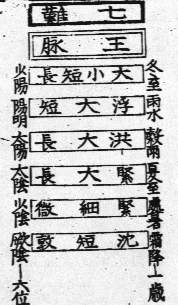 七難
王脈
冬至 雨水 穀雨 夏至 處暑 霜降 一歲
大小短長
浮大短
洪大長
緊大長
緊細微
沈短敦
少陽 陽明 太陽 太陰 少陰 厥陰 一六位